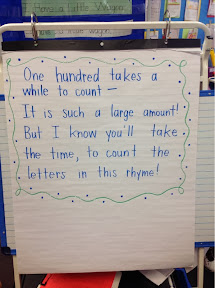 I Have a little
I have a little
One hundred takes a
while to count —
It is such a large amount!
But I know you'll take
the time, to count the
letters in this rhyme!